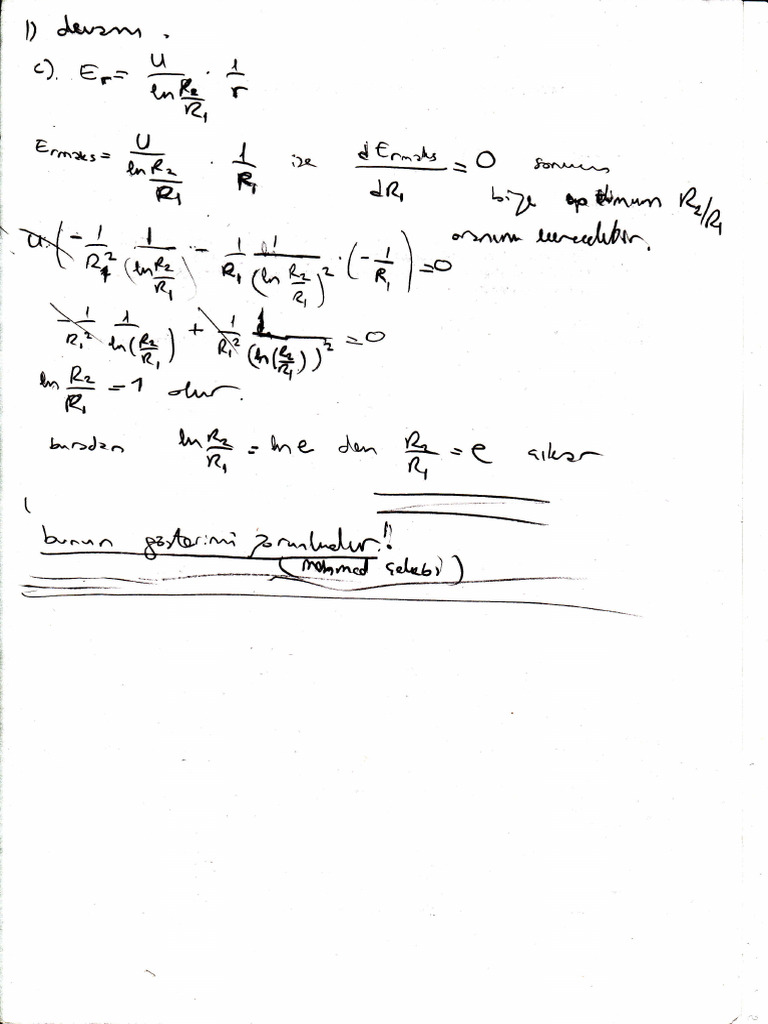 1) devam.
c). E_r = U / ln(R₂/R₁) · 1/r
E_rmaks = U / ln(R₂/R₁) · 1/R₁ ise dE_rmaks/dR₁ = 0 sonucu
bize optimum R₂/R₁
oranını verecektir.
U·(−1/R₁² 1/(ln R₂/R₁) − 1/R₁ 1/(ln R₂/R₁)² · (−1/R₁)) = 0
−1/R₁² 1/ln(R₂/R₁) + 1/R₁² 1/(ln(R₂/R₁))² = 0
ln R₂/R₁ = 1 olur.
buradan ln R₂/R₁ = ln e den R₂/R₁ = e çıkar
bunun gösterimi zorunludur.!!
(mohmad çelebi)